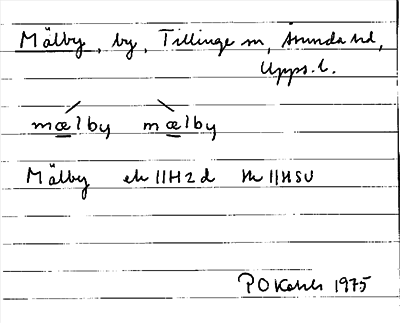 Mälby, by, Tillinge sn, Åsunda hd,
Upps. l.
mælby mælby
Mälby ek 11H2d hk 11HSU
P O 1975